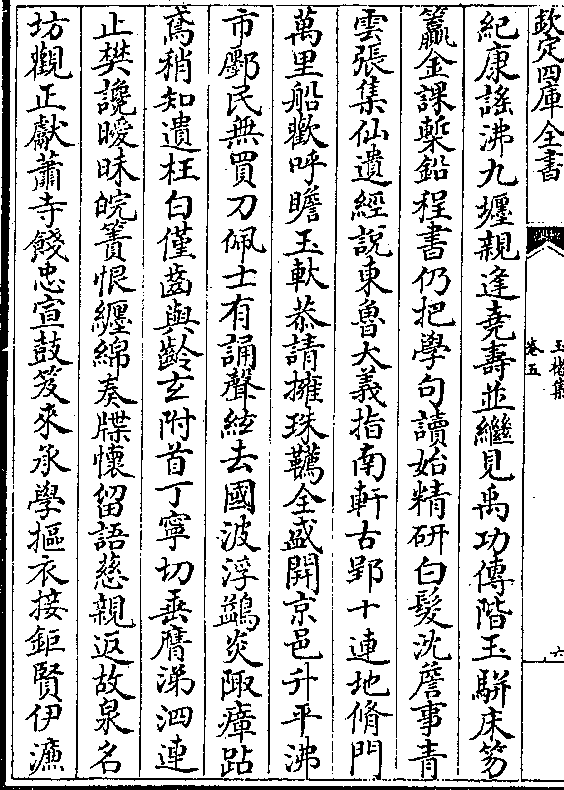 欽定四庫全書
玉楮集
卷五
六
紀康謡沸九壥親逢堯壽並繼見禹功傳階玉駢床笏
籯金課槧鉛程書仍把學句讀始精研白髮沈詹事青
雲張集仙遺經說東魯大義指南軒古郢十連地脩門
萬里船歡呼瞻玉軑恭請擁珠韉全盛開京邑升平沸
市鄽民無買刀佩士有誦聲絃去國波浮鷁炎陬瘴跕
鳶稍知遺枉白僅齒與齡玄附首丁寧切垂膺涕泗連
止樊讒曖昧皖簀恨纒綿奏牒懷留語慈親返故泉名
坊觀正獻蕭寺餞忠宣鼓笈來承學摳衣接鉅賢伊濂